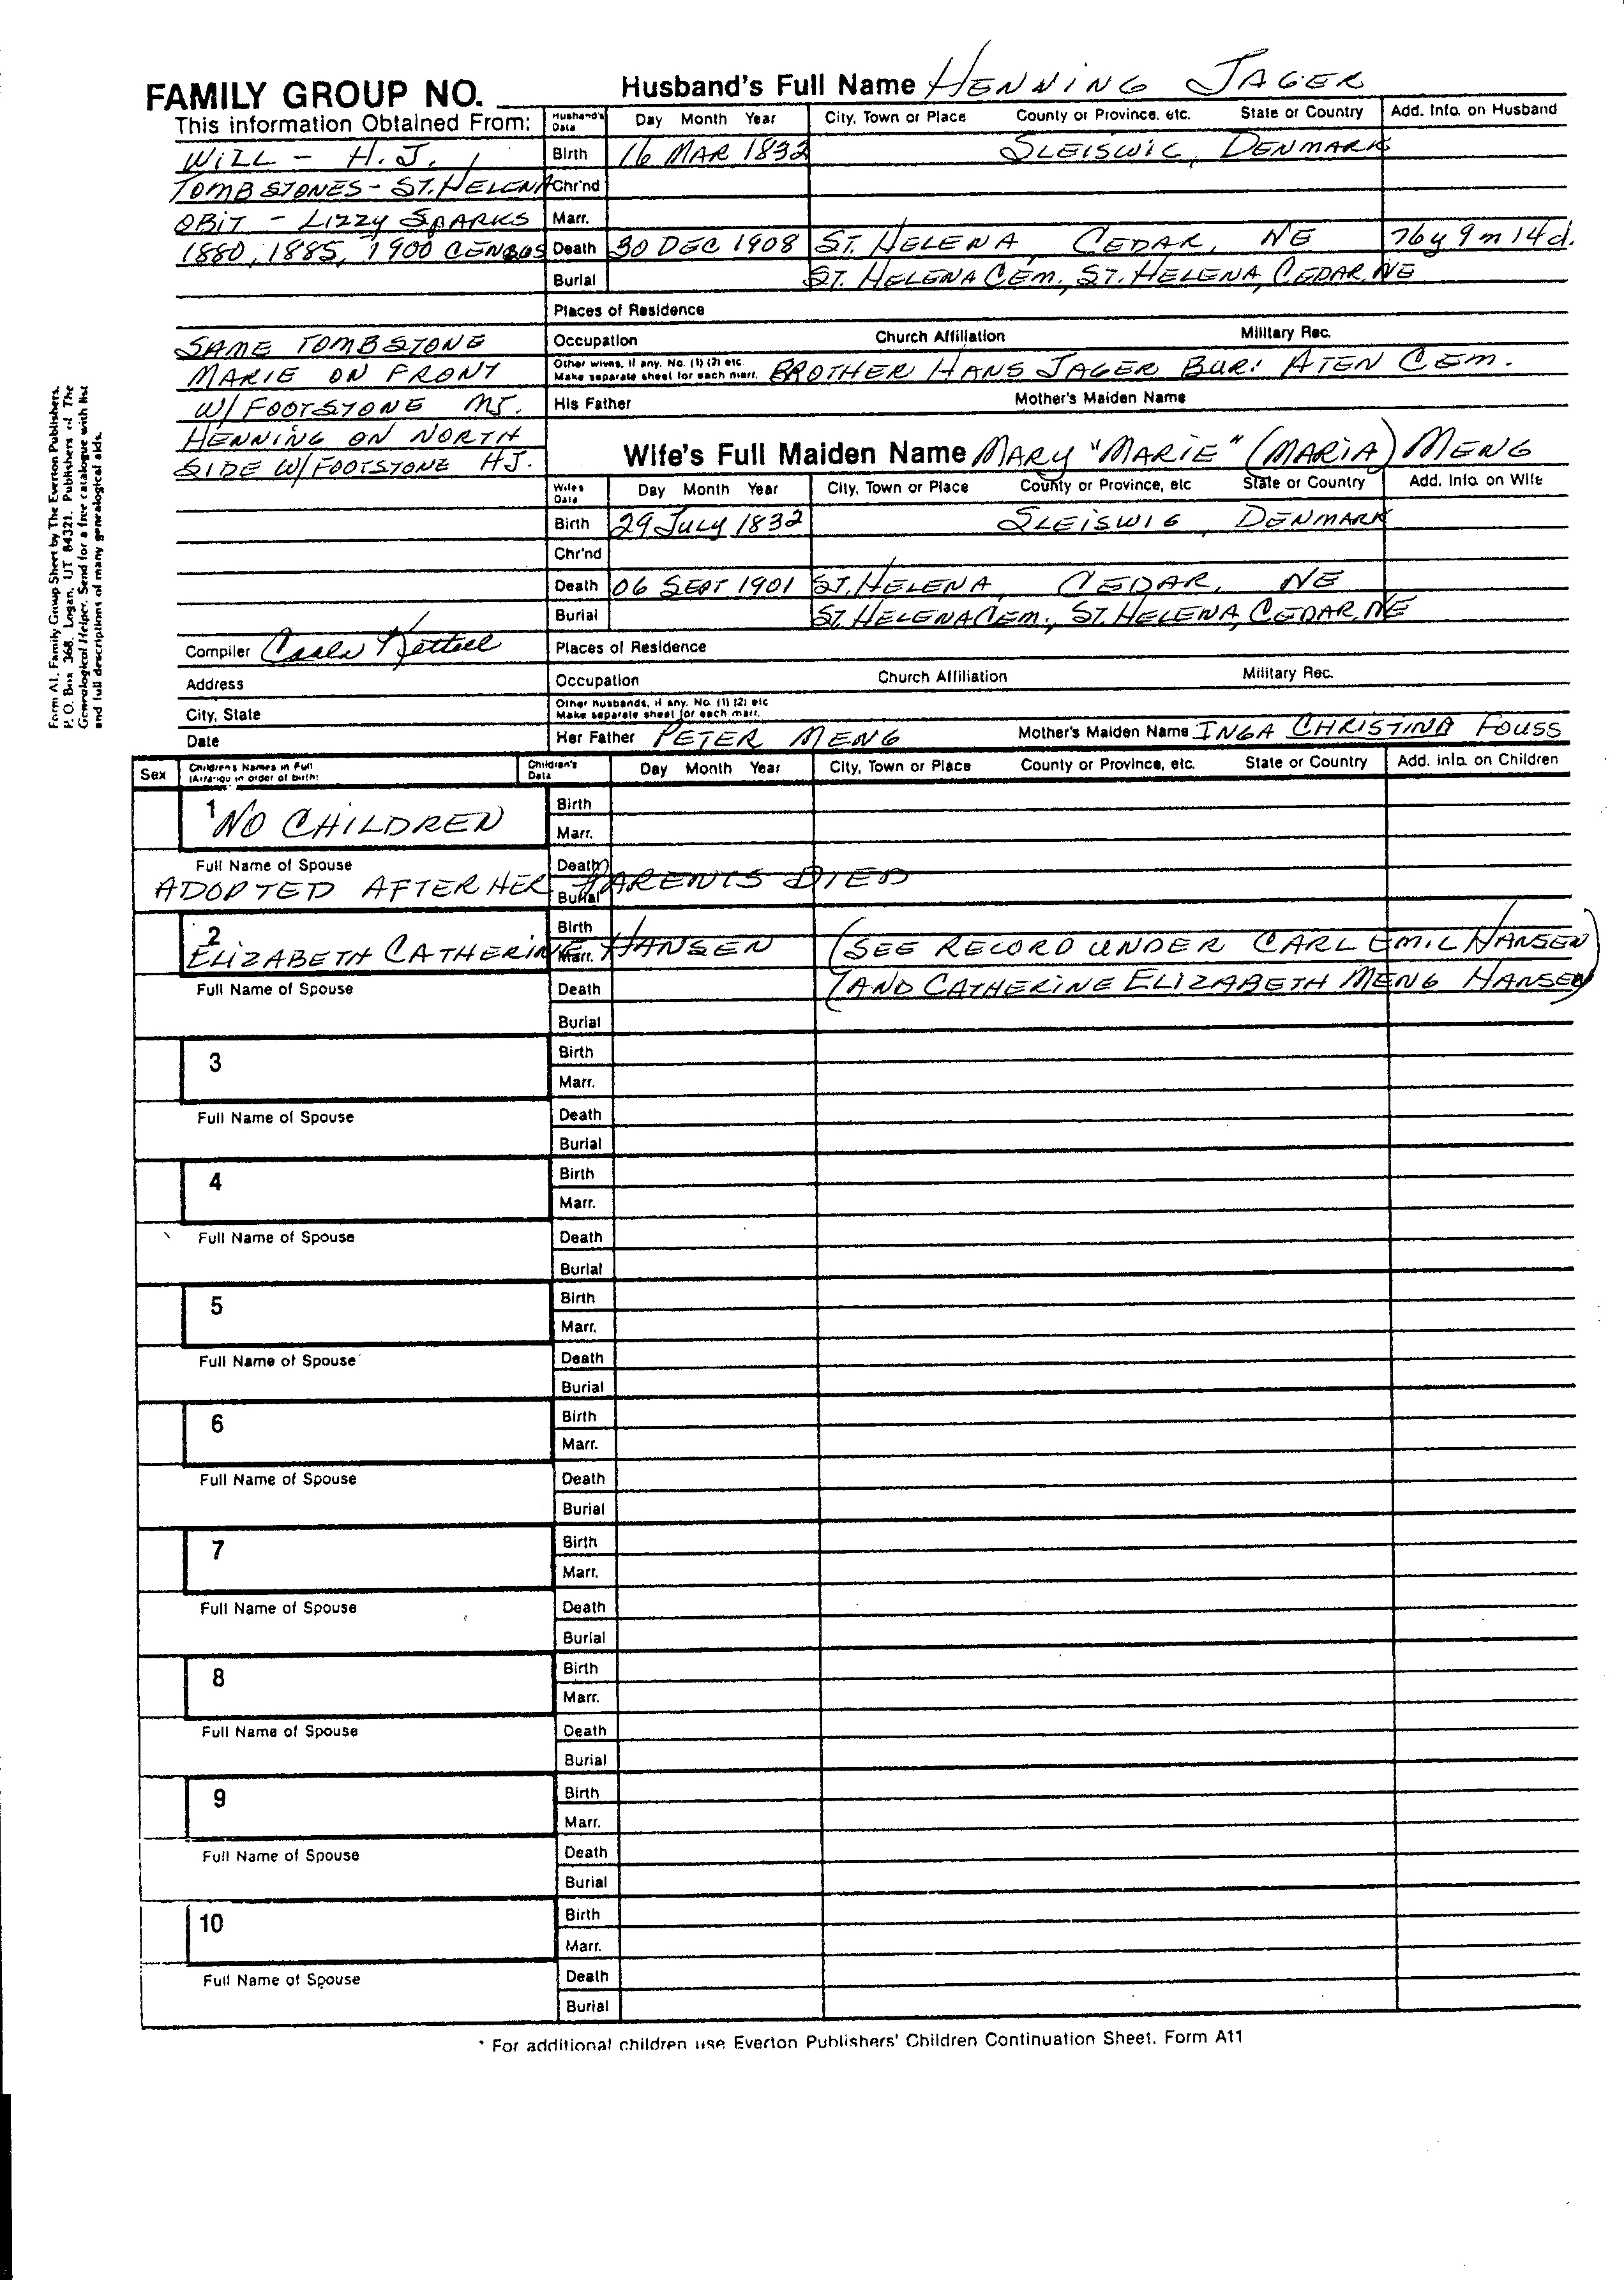 FAMILY GROUP NO. Husband's Full Name HENNING JAGER
This information Obtained From: Husband's Data Day Month Year City, Town or Place County or Province, etc. State or Country Add. Info. on Husband
WILL - H. J. Birth 16 MAR 1832 SLEISWIC, DENMARK
TOMBSTONES - ST. HELENA Chr'nd
OBIT - LIZZY SPARKS Marr.
1880, 1885, 1900 CENSUS Death 30 DEC 1908 ST. HELENA, CEDAR, NE 76y 9m 14d.
Burial ST. HELENA CEM., ST. HELENA, CEDAR, NE
Places of Residence
SAME TOMBSTONE Occupation Church Affiliation Military Rec.
MARIE ON FRONT Other wives, if any. No. (1) (2) etc. Make separate sheet for each marr. BROTHER HANS JAGER BUR: ATEN CEM.
W/ FOOTSTONE MJ. His Father Mother's Maiden Name
HENNING ON NORTH
SIDE W/ FOOTSTONE HJ. Wife's Full Maiden Name MARY "MARIE" (MARIA) MENG
Wife's Data Day Month Year City, Town or Place County or Province, etc State or Country Add. Info. on Wife
Birth 29 JULY 1832 SLEISWIG, DENMARK
Chr'nd
Death 06 SEPT 1901 ST. HELENA, CEDAR, NE
Burial ST. HELENA CEM., ST. HELENA, CEDAR, NE
Compiler Places of Residence
Address Occupation Church Affiliation Military Rec.
City, State Other husbands, if any. No. (1) (2) etc Make separate sheet for each marr.
Date Her Father PETER MENG Mother's Maiden Name INGA CHRISTINA FOUSS
Sex Children's Names in Full (Arrange in order of birth) Children's Data Day Month Year City, Town or Place County or Province, etc. State or Country Add. info. on Children
1 NO CHILDREN Birth
Marr.
Full Name of Spouse Death
ADOPTED AFTER HER PARENTS DIED Burial
2 Birth
ELIZABETH CATHERINE HANSEN Marr. (SEE RECORD UNDER CARL EMIL HANSEN)
Full Name of Spouse Death (AND CATHERINE ELIZABETH MENG HANSEN)
Burial
3 Birth
Marr.
Full Name of Spouse Death
Burial
4 Birth
Marr.
Full Name of Spouse Death
Burial
5 Birth
Marr.
Full Name of Spouse Death
Burial
6 Birth
Marr.
Full Name of Spouse Death
Burial
7 Birth
Marr.
Full Name of Spouse Death
Burial
8 Birth
Marr.
Full Name of Spouse Death
Burial
9 Birth
Marr.
Full Name of Spouse Death
Burial
10 Birth
Marr.
Full Name of Spouse Death
Burial
* For additional children use Everton Publishers' Children Continuation Sheet. Form A11
Form A1, Family Group Sheet by The Everton Publishers,
P. O. Box 368, Logan, UT 84321. Publishers of The
Genealogical Helper. Send for a free catalogue with list
and full descriptions of many genealogical aids.